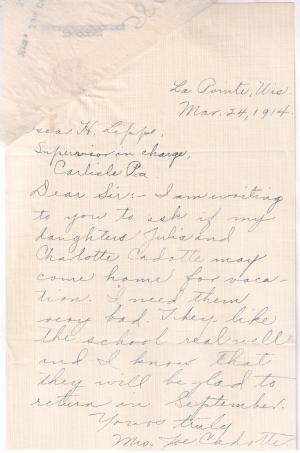 La Pointe, Wis.
Mar. 24, 1914.
H. Lipps,
Supervisor in charge,
Carlisle Pa
Dear Sir:- I am writing
to you to ask if my
daughters Julia and
Charlotte Cadotte may
come home for vaca-
tion. I need them
very bad. They like
the school real well
and I know that
they will be glad to
return in September.
Yours truly
Mrs. Joe Cadotte.